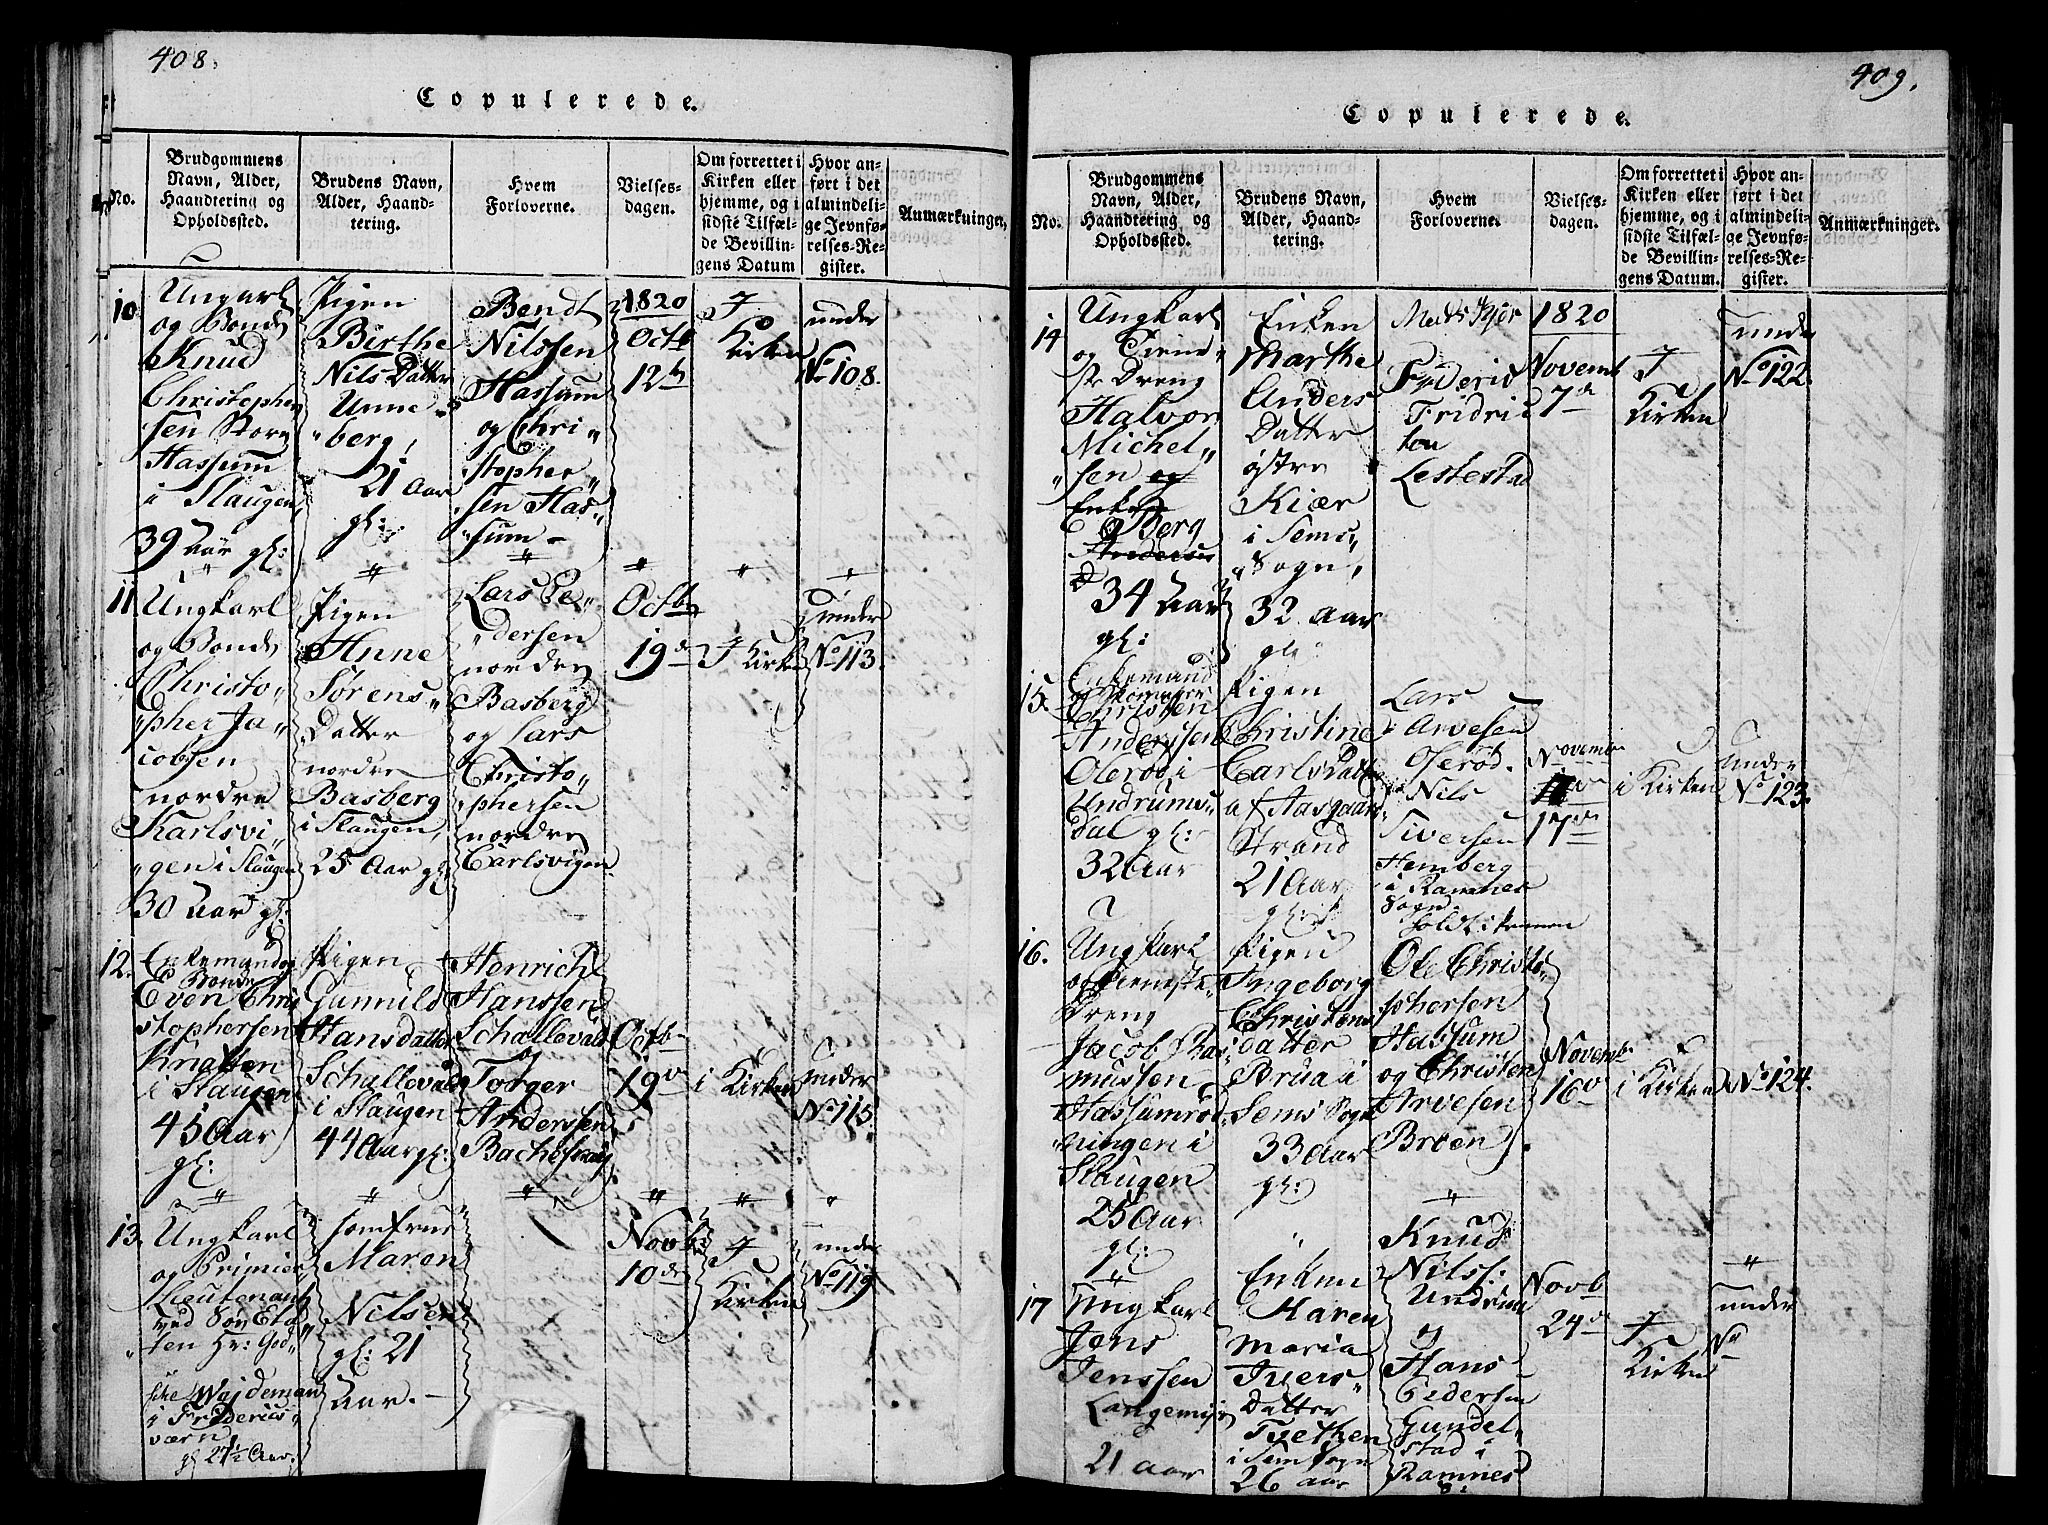 408.
Copulerede.
No.
Brudgommens
Navn, Alder,
Haandtering og
Opholdssted.
Brudens Navn,
Alder, Haand-
tering.
Hvem
Forloverne.
Vielses-
dagen.
Om forrettet i
Kirken eller
hjemme, og i
sidste Tilfæl-
de Bevillin-
gens Datum
Hvor an-
ført i det
almindeli-
ge Jevnfø-
relses-Re-
gister.
Anmærkninger.
10
Ungkarl
og Bonde
Knud
Christopher
sen Store
Hassum
i Slaugen
39 Aar gl:
Pigen
Birthe
Nils Datter
Unne
berg,
21 Aar
gl:
Bendt
Nilssen
Hassum
og Chri
stopher
sen Has
sum
1820
Octb
12
I
Kirken
under
No 108.
11
Ungkarl
og Bonde
Christo
pher Ja
cobsen
nordre
Karlsvi
gen i Slaugen
30 Aar gl:
Pigen
Anne
Sørens
Datter
nordre
Basberg
i Slaugen,
25 Aar gl
Lars Pe
dersen
nordre
Basberg
og Lars
Christo
phersen
nordre
Carlsvigen
Octb
19
I Kirken
under
No 113.
12.
Enkemand og
Bonde
Even Chri
stophersen
Knatten
i Slaugen
45 Aar
gl:
Pigen
Gunnild
Hansdatter
Schallevald
i Slaugen
44 Aar gl:
Henrich
Hanssen
Schallevald
og
Torger
Anderssen
Octb
19
i Kirken
under
No 115.
13.
Ungkarl
og Primier
Lieutenant
ved Søe Eta
ten Hr: God
sche Wajdeman
i Friderics
værn
gl 27½ Aar.
Jomfrue
Maren
Nilsen
gl: 21
Aar.
Novb:
10
I
Kirken
under
No 119
409.
Copulerede.
No.
Brudgommens
Navn, Alder,
Haandtering og
Opholdssted.
Brudens Navn,
Alder, Haand-
tering.
Hvem
Forloverne.
Vielses-
dagen.
Om forrettet i
Kirken eller
hjemme, og i
sidste Tilfæl-
de Bevillin-
gens Datum.
Hvor an-
ført i det
almindeli-
ge Jevnfø-
relses-Re-
gister.
Anmærkninger.
14
Ungkarl
og Tiene
ste Dreng
Halvor
Michel
sen og
Enken
Berg
34 Aar
gl:
Enken
Marthe
Anders
Datter
østre
Kiær
i Sems
Sogn,
32 Aar
gl:
Fridric
Lestestad
1820
Novemb
7
I
Kirken
under
No 122.
15.
Enkemand
Christen
Anderssen
Olerød i
Undrums
dal gl:
32 Aar
Pigen
Christine
Carls Datter
af Aasgaard
Strand
21 Aar
gl:
Lars
Arvesen
Olerød.
Nils
Siversen
Hemberg
i Ramnes
Sogn.
Novemb
17
i Kirken
under
No 123.
16.
Ungkarl
og Tieneste
Dreng
Jacob Ras
mussen
Hassumrød
ningen i
Slaugen
25 Aar
gl:
Pigen
Ingeborg
Christens
datter
Brua i
Sems Sogn
33 Aar
gl:
Ole Christo
phersen
Hassum
og Christen
Arvesen
Broen
Novemb
16
i Kirken
No 124.
17
Ungkarl
Jens
Jenssen
21 Aar
Enken
Karen
Maria
Ivers
Datter
Tvethen
i Sem Sogn
26 Aar
Knud
Nilss:
Undrum
og
Hans
Pedersen
Gundel
stad i
Ramnes
S:
Novb
24
I
Kirken
under
No